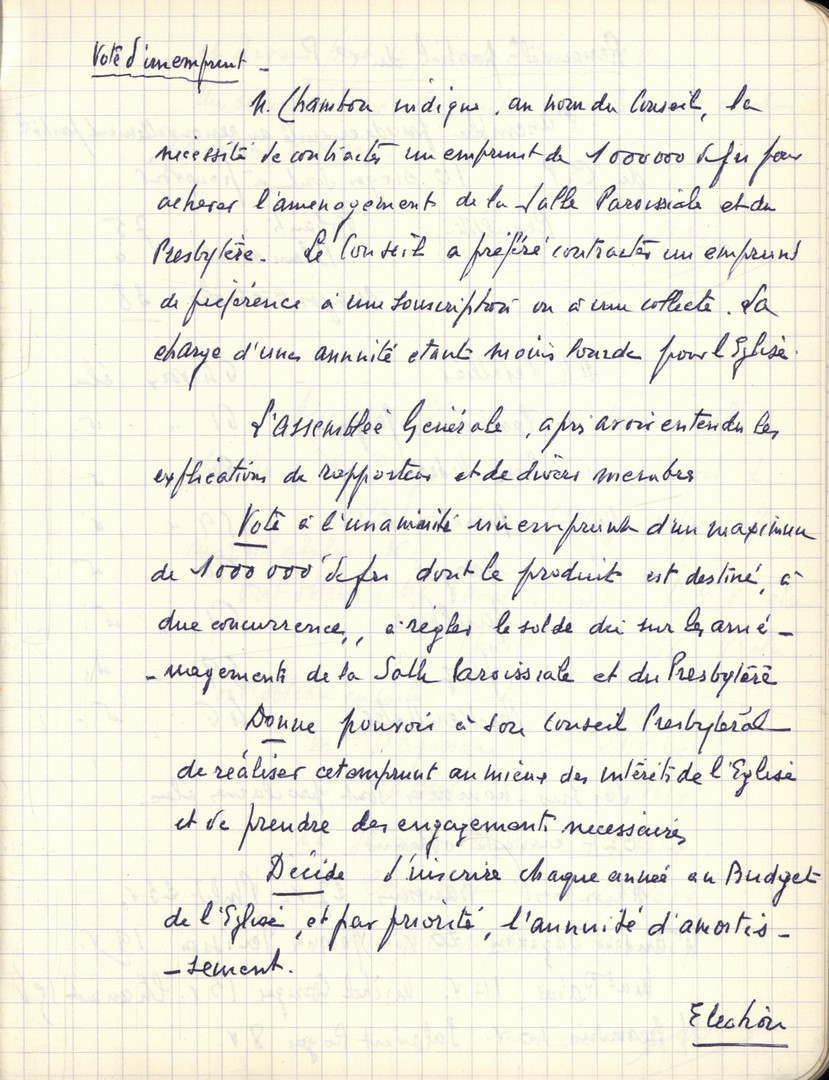 Vote d'un emprunt -
M. Chambon indique, au nom du Conseil, la
nécessité de contracter un emprunt de 1000000 de frs pour
achever l'aménagements de la Salle Paroissiale et du
Presbytère. Le Conseil a préféré contracter un emprunt
de préférence à une souscription ou à une collecte. La
charge d'une annuité étant moins lourde pour l'Eglise.
L'assemblée Générale, après avoir entendu les
explications du rapporteur et de divers membres
Vote à l'unanimité un emprunt d'un maximum
de 1000 000 de frs dont le produit est destiné, à
due concurrence, à régler le solde dû sur les amé-
-nagements de la Salle Paroissiale et du Presbytère
Donne pouvoir à son Conseil Presbytéral
de réaliser cet emprunt au mieux des intérêts de l'Eglise
et de prendre des engagements necessaires
Décide d'inscrire chaque année au Budget
de l'Eglise, et par priorité, l'annuité d'amortis-
-sement.
Election